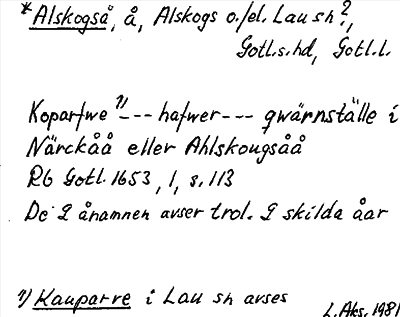 *Alskogså, å, Alskogs o./el. Lau sn?,
Gotl.s.hd, Gotl.l.
Koparfwe 1) --- hafwer --- qwärnställe i
Närckåå eller Ahlskougsåå
Rb Gotl. 1653, 1, s. 113
De 2 ånamnen avser trol. 2 skilda åar
1) Kauparve i Lau sn avses
L. Aks. 1981